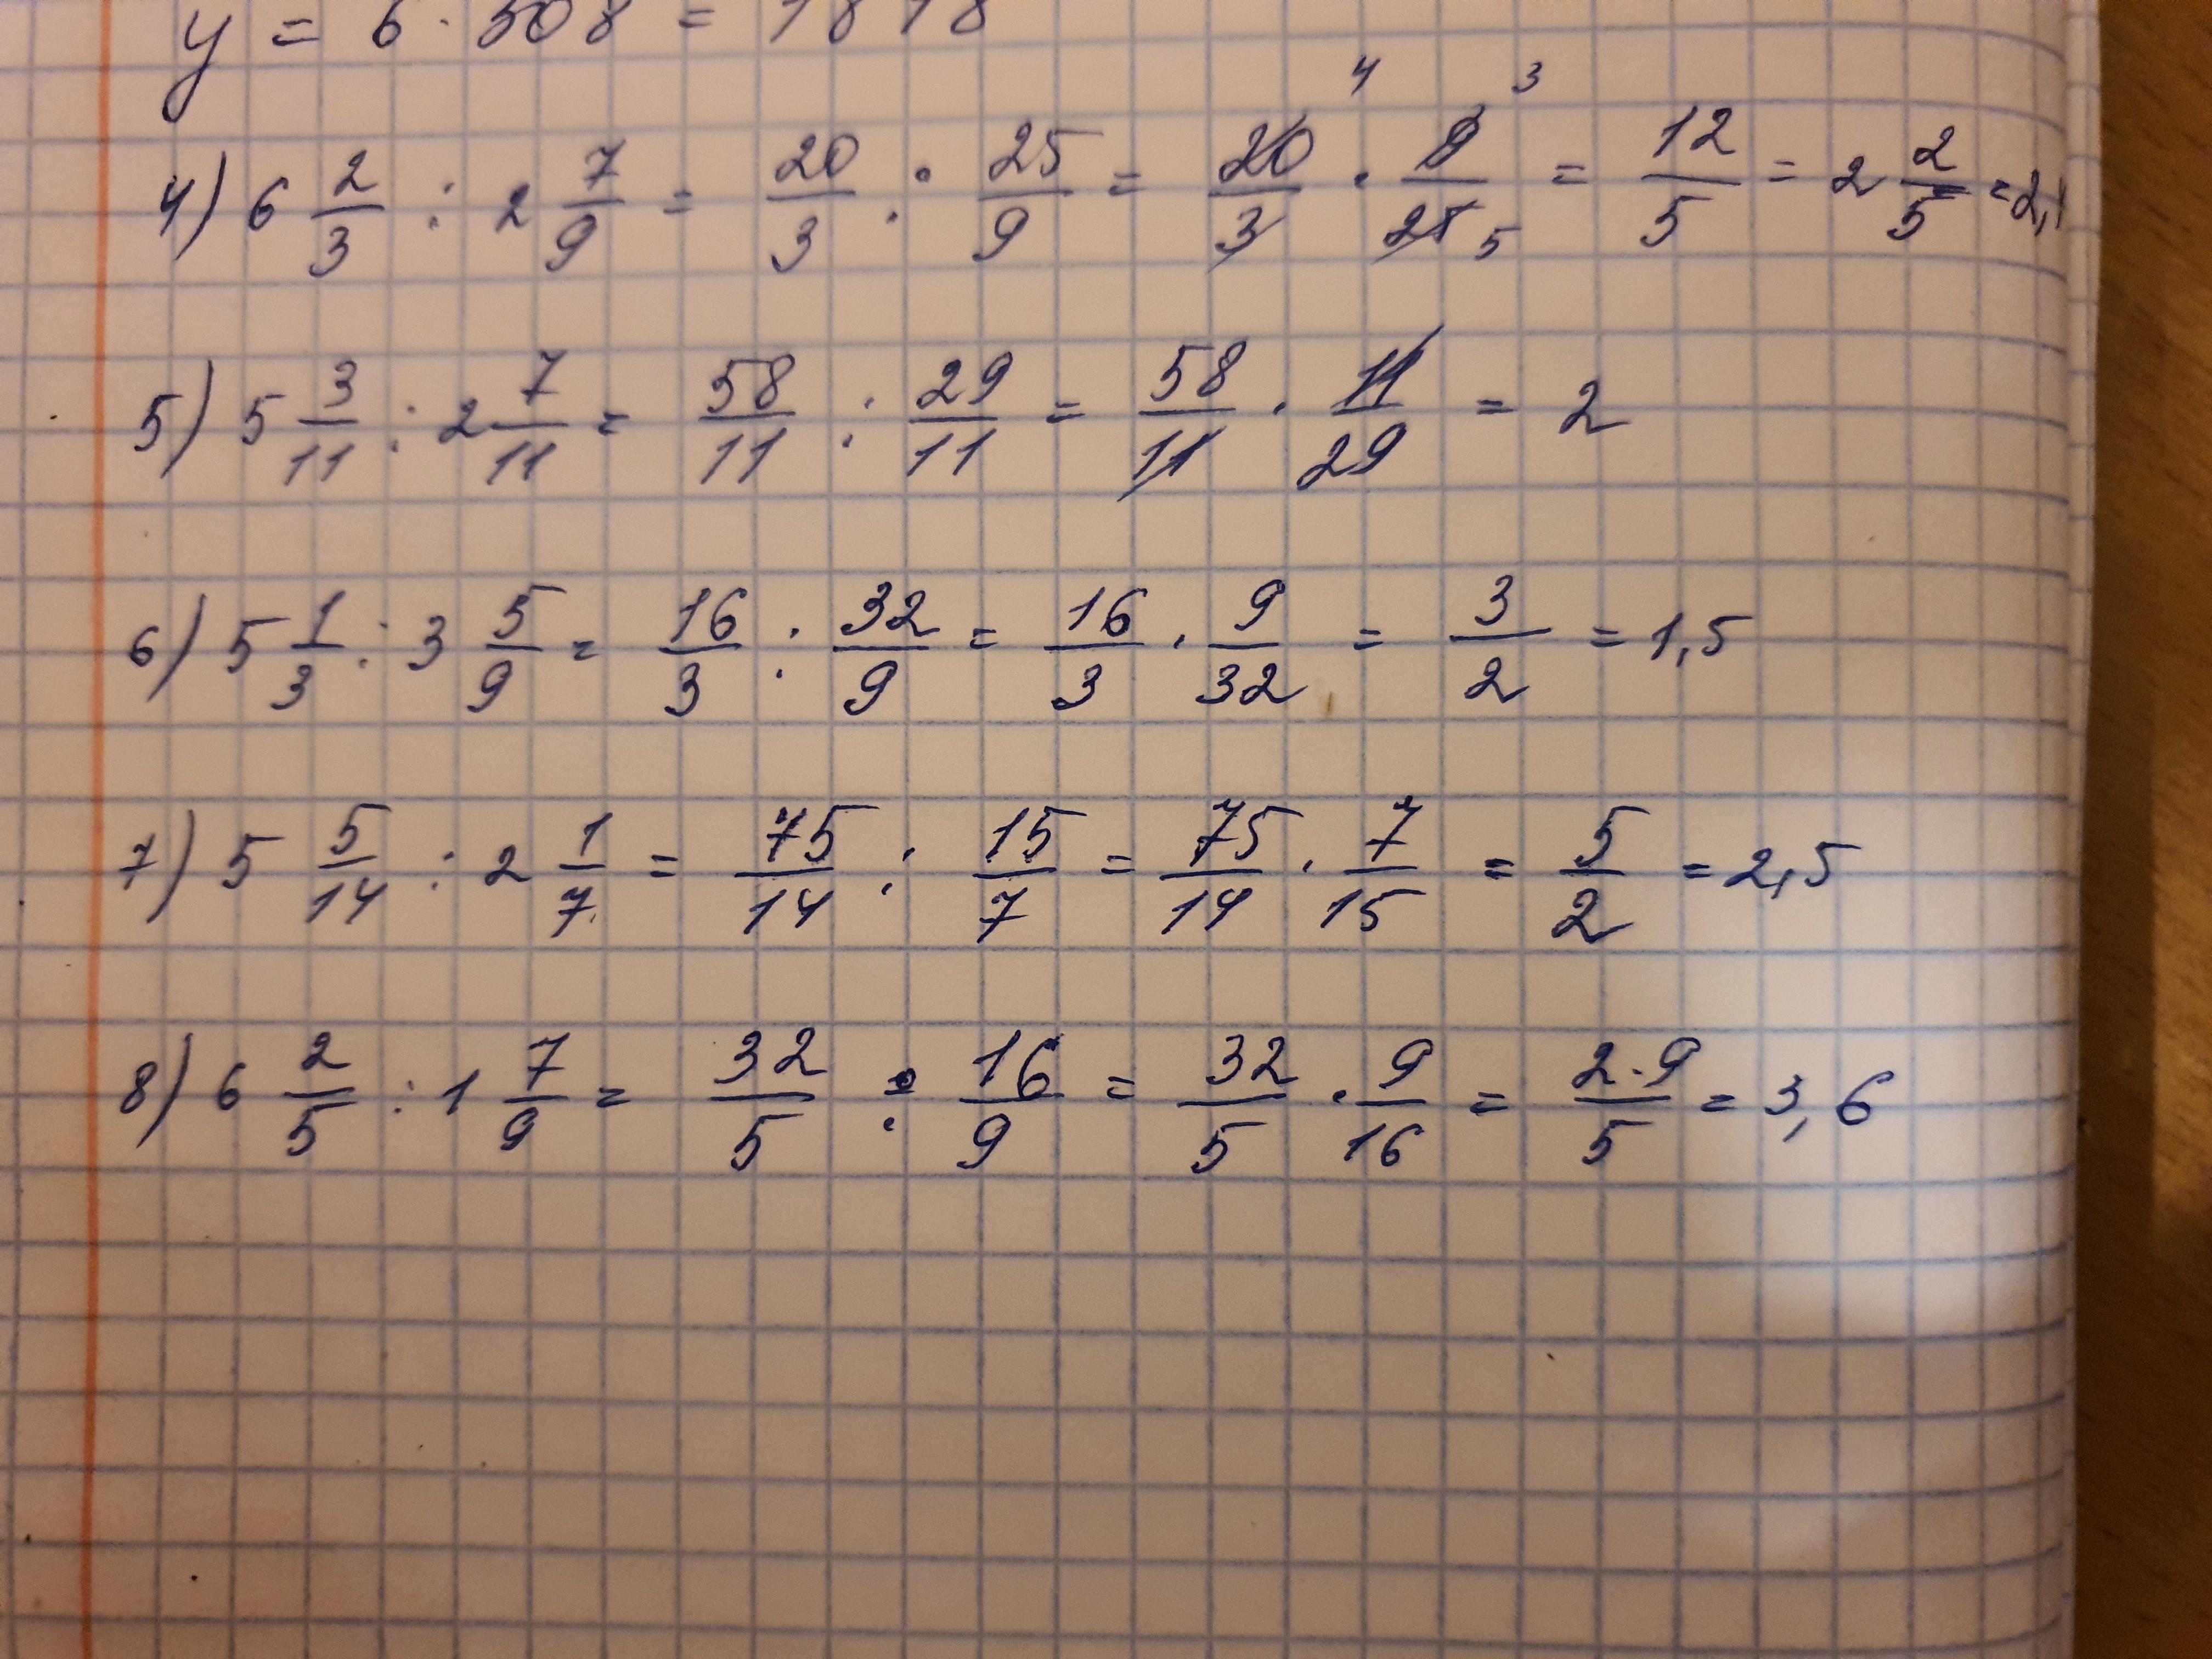 y = 6 · 308 = 1818
4) 6 2/3 : 2 7/9 = 20/3 : 25/9 = 20/3 · 9/25 4 3 5 = 12/5 = 2 2/5 = 2,
5) 5 3/11 : 2 7/11 = 58/11 : 29/11 = 58/11 · 11/29 = 2
6) 5 1/3 : 3 5/9 = 16/3 : 32/9 = 16/3 · 9/32 = 3/2 = 1,5
7) 5 5/14 : 2 1/7 = 75/14 : 15/7 = 75/14 · 7/15 = 5/2 = 2,5
8) 6 2/5 : 1 7/9 = 32/5 : 16/9 = 32/5 · 9/16 = 2·9/5 = 3,6